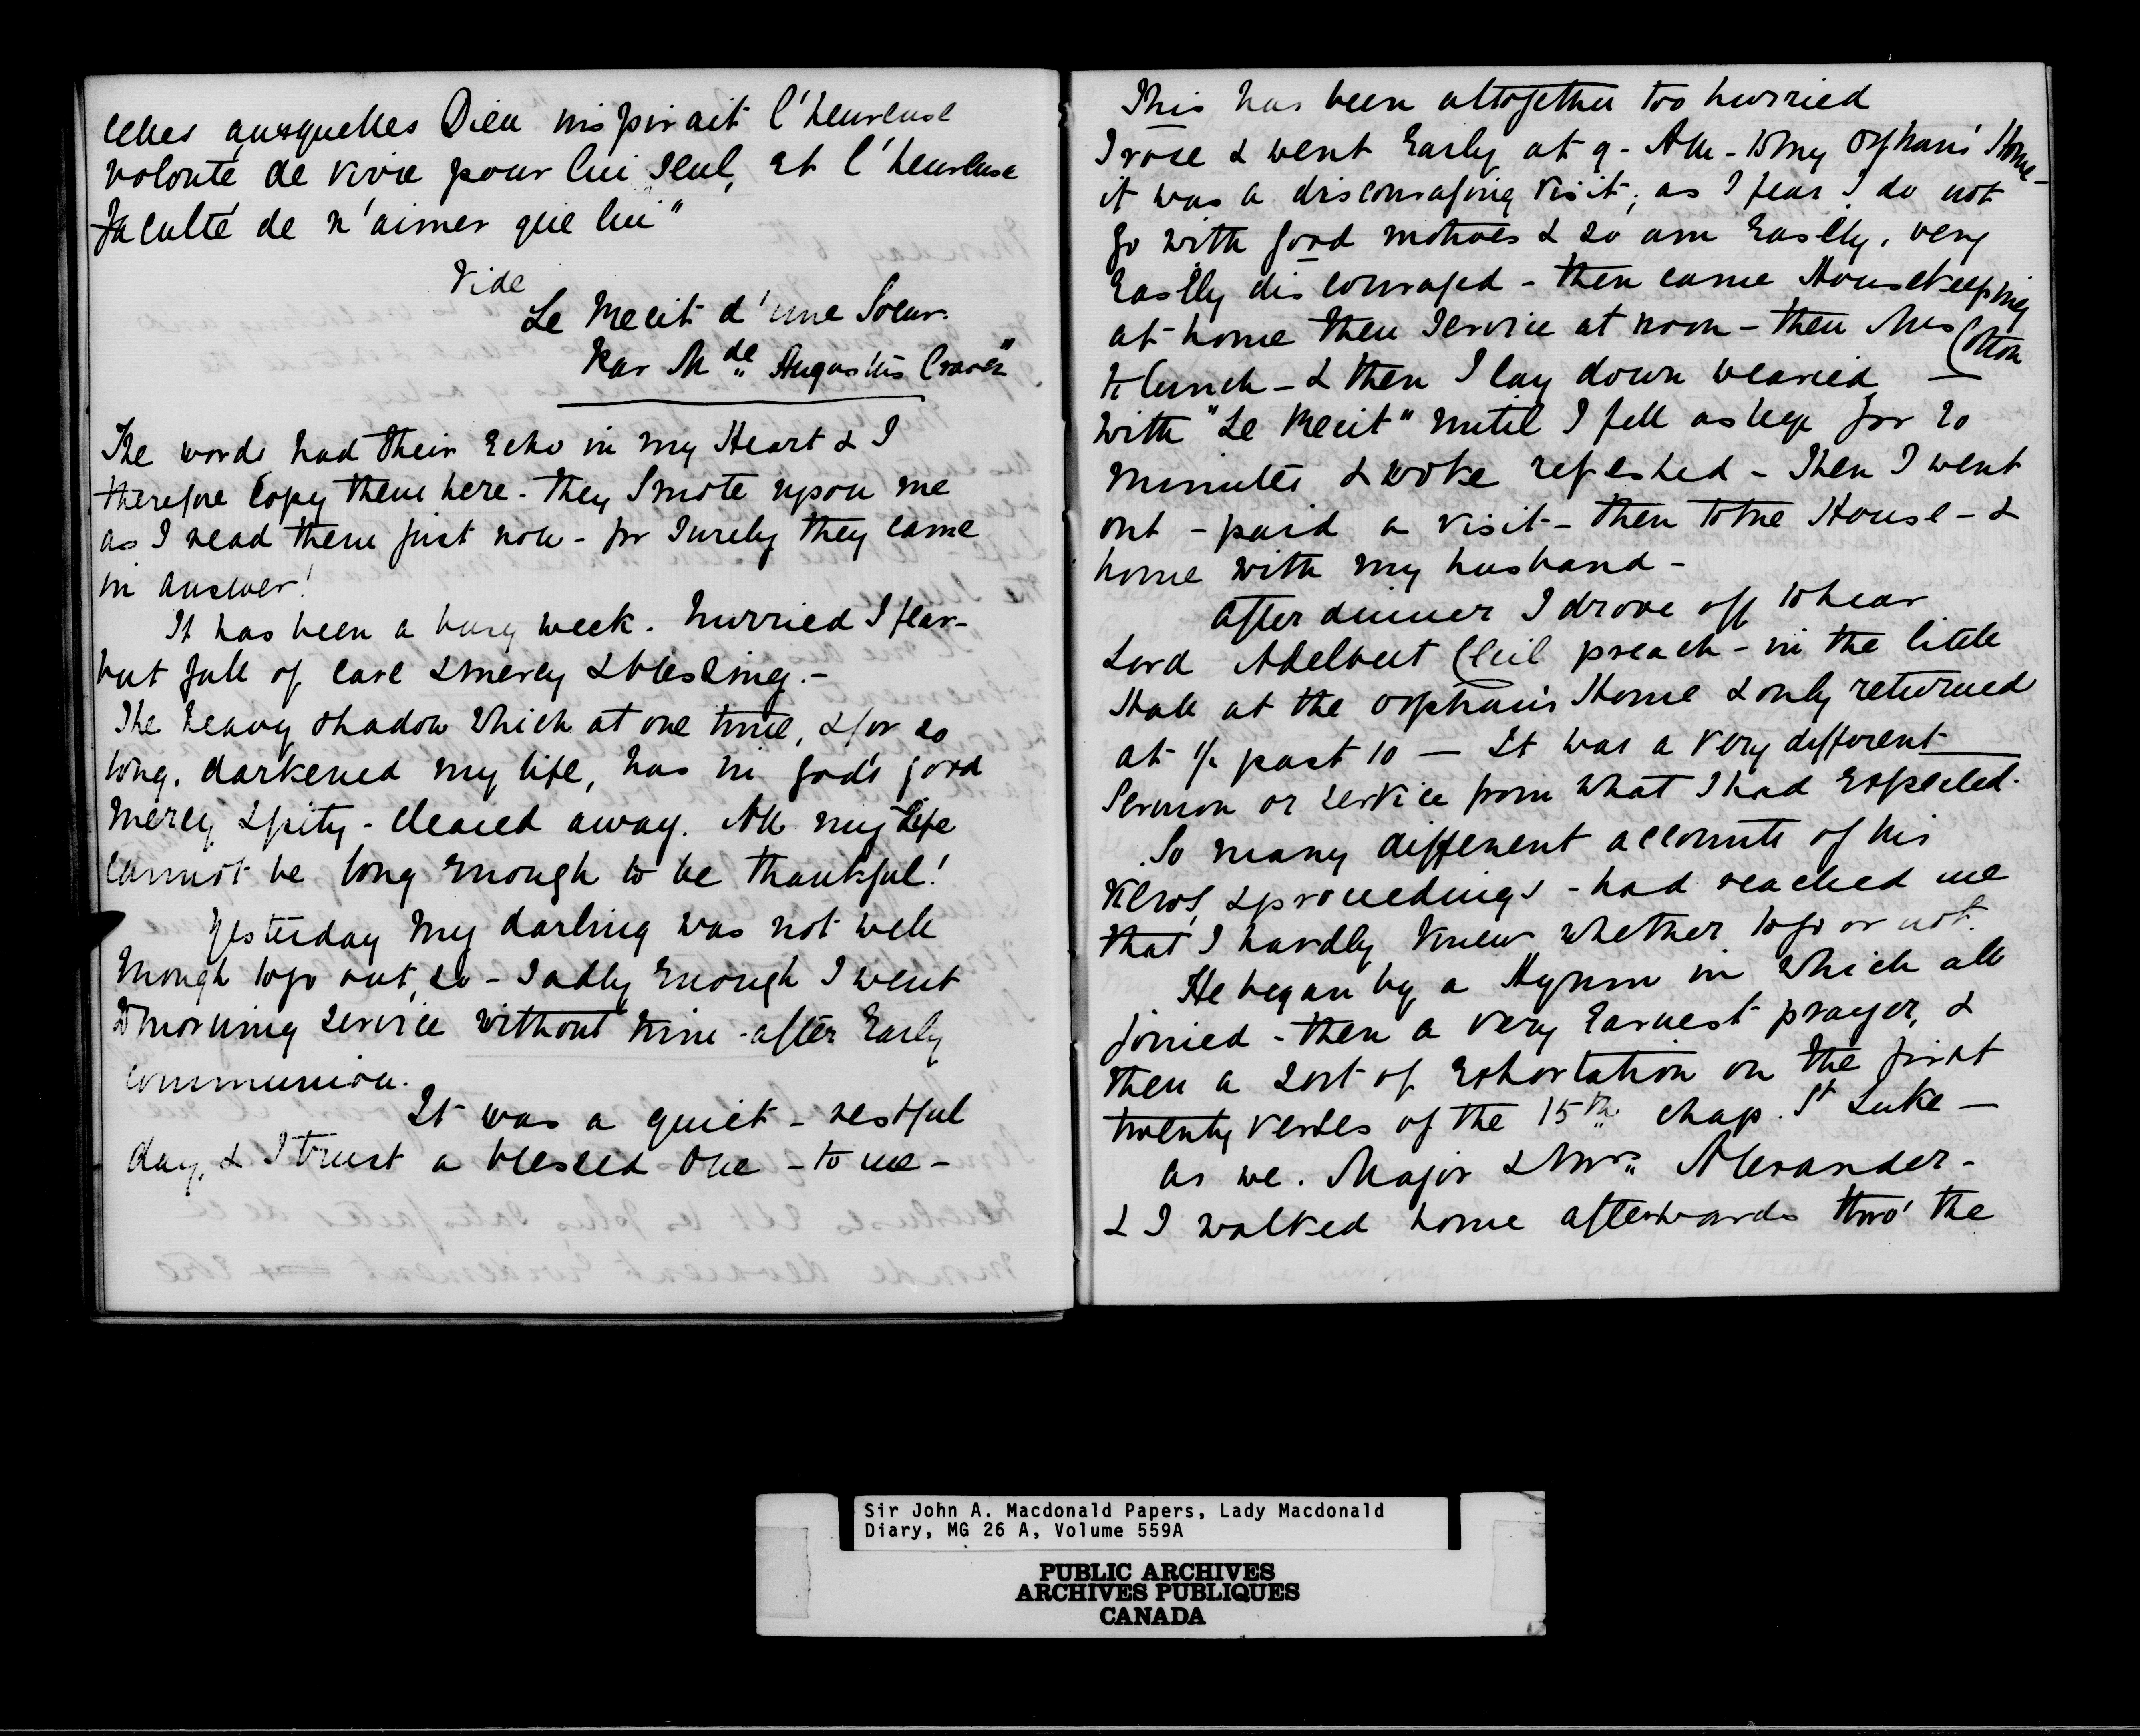 celles auxquelles Dieu inspirait l'heureuse
volonté de vivre pour lui seul, et l'heureuse
faculté de n'aimer que lui"
Vide
Le Recit d'une Soeur.
Par Mde Augustus Craven"
The words had their Echo in my Heart & I
therefore Copy them here - they Smote upon me
as I read them just now - for Surely they came
in answer!
It has been a busy week. hurried I fear -
but full of care & mercy & blessing. -
The heavy shadow which at one time, & for so
long, darkened my life, has in God's good
mercy & pity - cleared away. All my Life
cannot be long Enough to be thankful!
Yesterday my darling was not well
Enough to go out, so - Sadly Enough I went
to morning Service without him - after Early
communion.
It was a quiet - restful
day, & I trust a blessed One - to me -
This has been altogether too hurried
I rose & went Early at 9 - AM - to my Orphans' Home -
it was a discouraging Visit; as I fear I do not
go with good motives & so am Easily, very
Easily discouraged - then came Housekeeping
at home then Service at noon - then Mrs Cotton
to lunch - & then I lay down wearied -
with "Le Recit" until I fell asleep for 20
minutes & woke refreshed - Then I went
out - paid a visit - then to the House - &
home with my husband -
After dinner I drove off to hear
Lord Adelbert Cecil preach - in the little
Hall at the Orphan's Home & only returned
at ½ past 10 - It was a very different
Sermon or service from what I had Expected.
So many different accounts of his
views, & proceedings - had reached me
that I hardly knew whether to go or not.
He began by a Hymn in which all
joined - then a very Earnest prayer, &
then a sort of Exhortation on the first
twenty verses of the 15th chap. St Luke -
As we. Major & Mrs Alexander -
& I walked home afterwards thro' the
Sir John A. Macdonald Papers, Lady Macdonald
Diary, MG 26 A, Volume 559A
PUBLIC ARCHIVES
ARCHIVES PUBLIQUES
CANADA